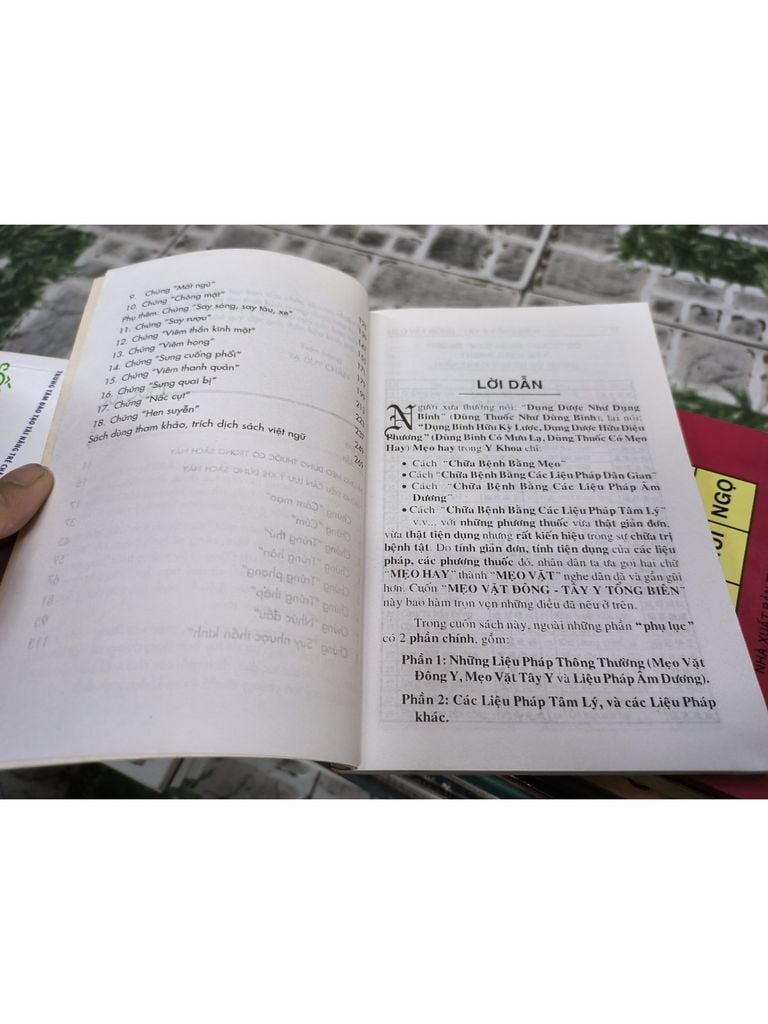 9. Chứng "Mất ngủ"
10. Chứng "Chóng mặt"
Phụ thêm: Chứng "Say sóng, say tàu, xe"
11. Chứng "Say rượu"
12. Chứng "Viêm thần kinh mặt"
13. Chứng "Viêm họng"
14. Chứng "Sưng cuống phổi"
15. Chứng "Viêm thanh quản"
16. Chứng "Sưng quai bị"
17. Chứng "Nấc cụt"
18. Chứng "Hen suyễn"
Sách dùng tham khảo, trích dịch sách việt ngữ
171
179
199
213
LỜI DẪN
Người xưa thường nói: "Dụng Dược Như Dụng
Binh" (Dùng Thuốc Như Dùng Binh), lại nói:
"Dụng Binh Hữu Kỳ Lược, Dụng Dược Hữu Diệu
Phương" (Dùng Binh Có Mưu Lạ, Dùng Thuốc Có Mẹo
Hay) Mẹo hay trong Y Khoa chỉ:
• Cách "Chữa Bệnh Bằng Mẹo"
• Cách "Chữa Bệnh Bằng Các Liệu Pháp Dân Gian"
• Cách "Chữa Bệnh Bằng Các Liệu Pháp Âm
Dương"
• Cách "Chữa Bệnh Bằng Các Liệu Pháp Tâm Lý"
v.v... với những phương thuốc vừa thật giản đơn,
vừa thật tiện dụng nhưng rất kiến hiệu trong sự chữa trị
bệnh tật. Do tính giản đơn, tính tiện dụng của các liệu
pháp, các phương thuốc đó, nhân dân ta ưa gọi hai chữ
"MẸO HAY" thành "MẸO VẶT" nghe dân dã và gần gũi
hơn. Cuốn "MẸO VẶT ĐÔNG - TÂY Y TỔNG BIÊN"
này bao hàm trọn vẹn những điều đã nêu ở trên.
Trong cuốn sách này, ngoài những phần "phụ lục"
có 2 phần chính, gồm:
Phần 1: Những Liệu Pháp Thông Thường (Mẹo Vặt
Đông Y, Mẹo Vặt Tây Y và Liệu Pháp Âm Dương).
Phần 2: Các Liệu Pháp Tâm Lý, và các Liệu Pháp
khác.
TRUNG TÂM ĐÀO TẠO TÀI NĂNG TRẺ
NGỌ
NHÀ XUẤT BẢN